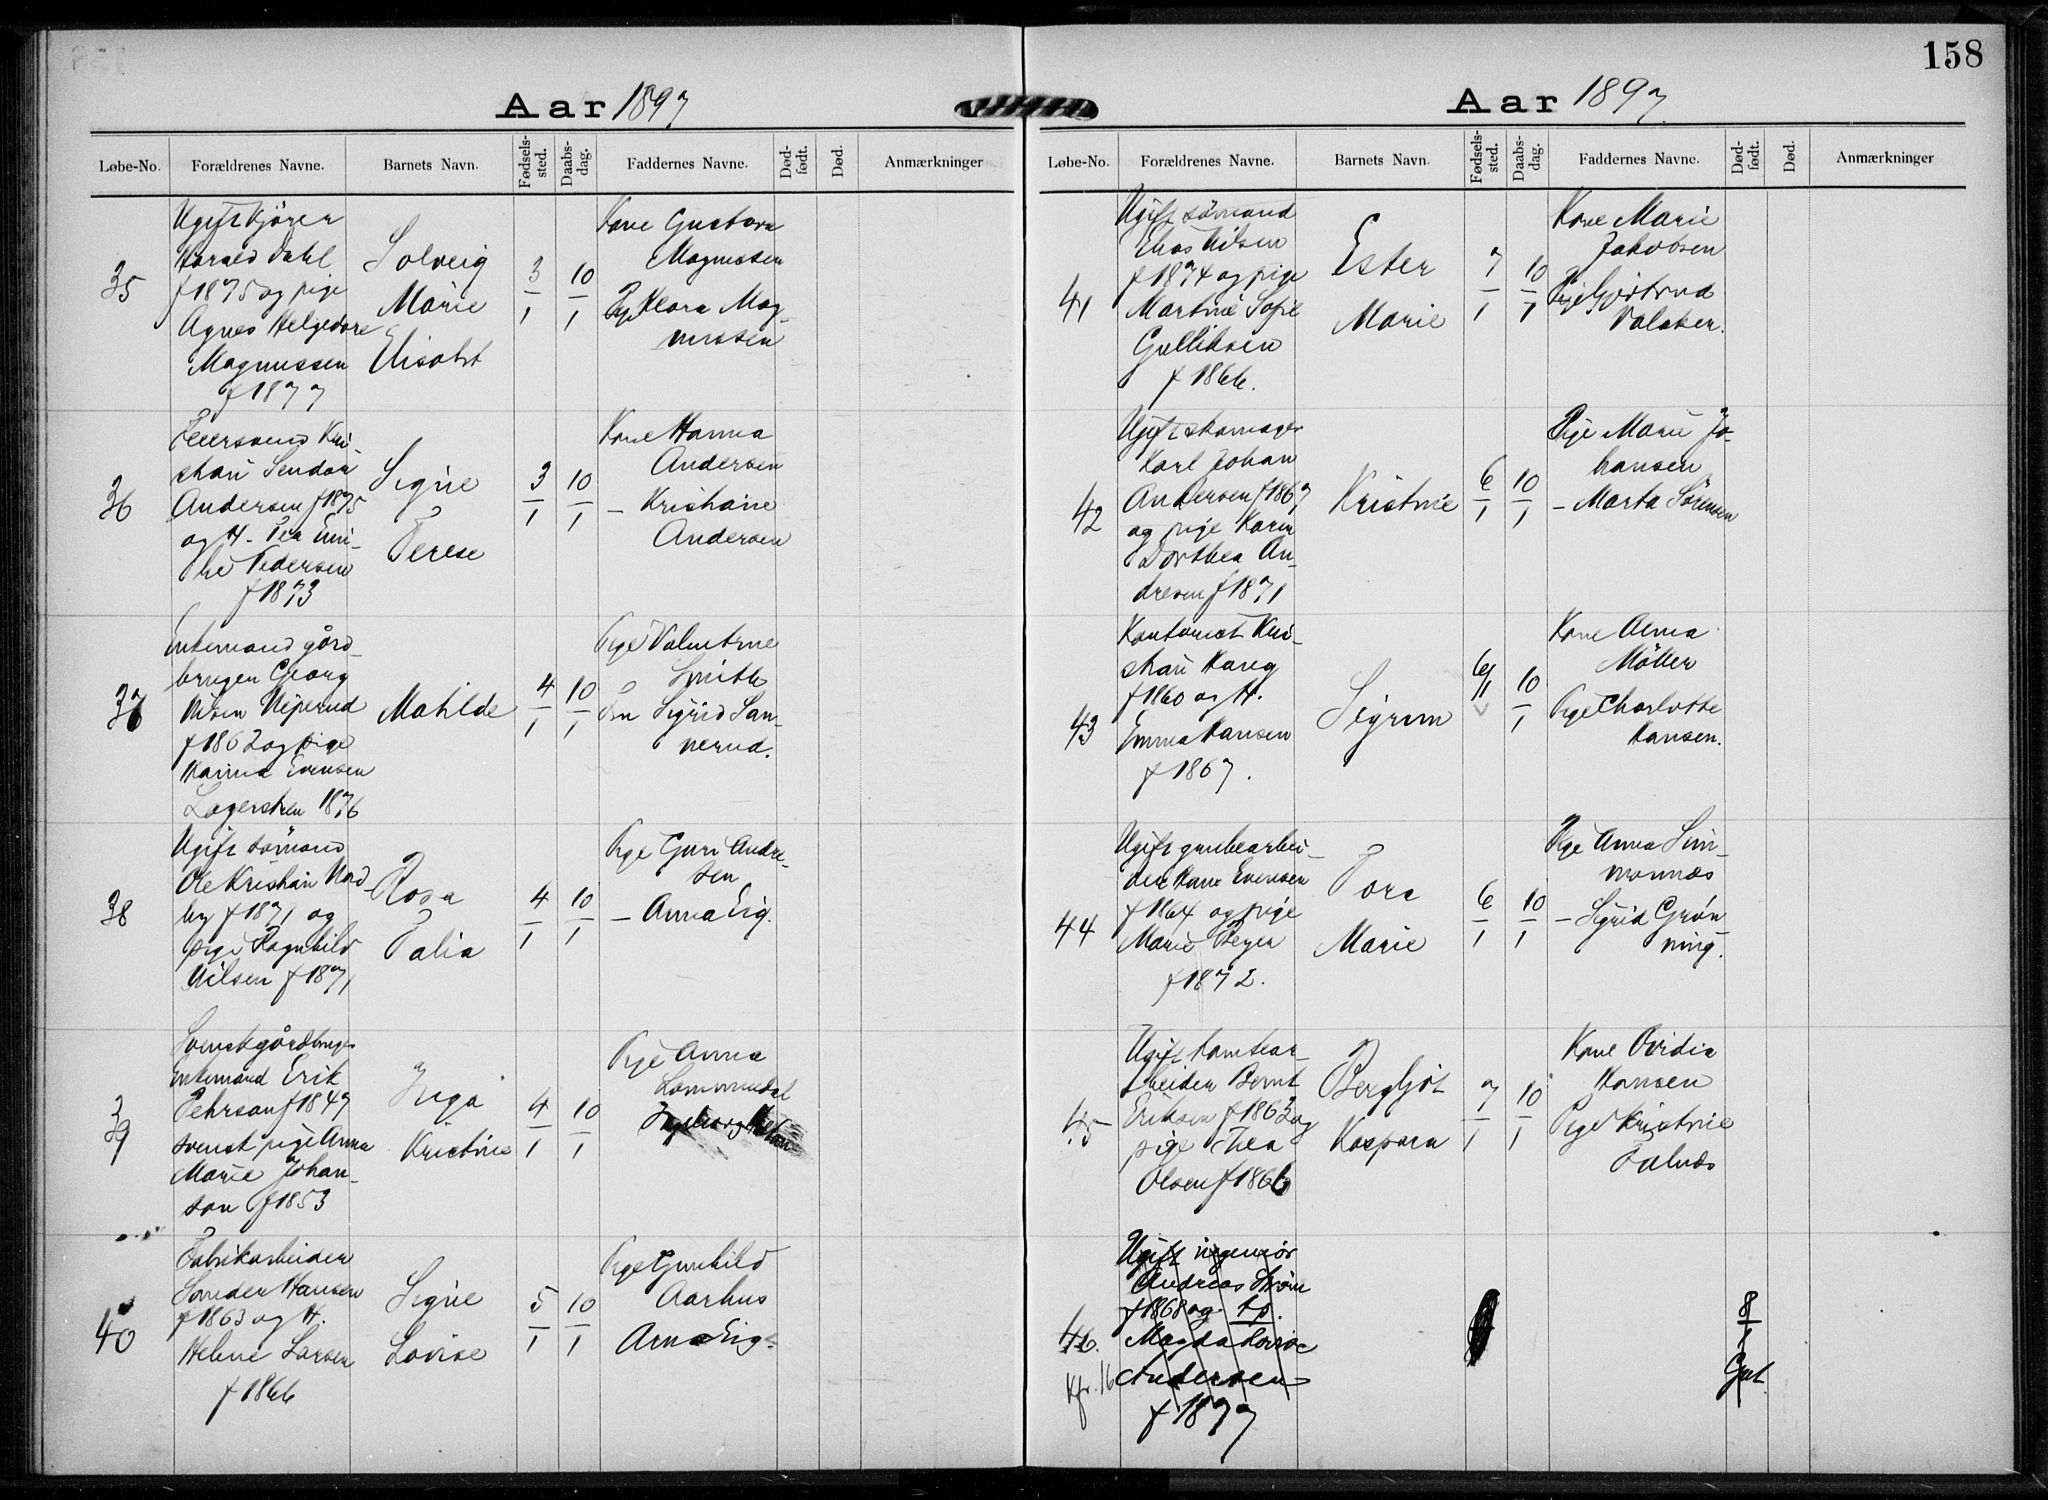 158
Aar 1897
Løbe-No.
Forældrenes Navne.
Barnets Navn.
Fødsels-
sted.
Daabs-
dag.
Faddernes Navne.
Død-
født.
Død.
Anmærkninger
35
Ugift kjører
Harald Dahl
f 1875 og pige
Agnes Helgedore
Magnussen
f 1877
Solveig
Marie
Elisabet
3/1
10/1
Kone Gustava
Magnusen
Pige Klara Mag-
nussen
36
Feiersvend Kri-
stian Sendor
Andersen f 1875
og H. Tea Emi-
lie Pedersen
f 1873
Signe
Terese
3/1
10/1
Kone Hanna
Andersen
– Kristiane
Andersen
37
Enkemand gård-
brugen Georg
Nilsen Niperud
f 1862 og pige
Hanna Evensen
1876
Matilde
4/1
10/1
Pige Valentine
Smith
Sigrid San-
nerud.
38
Ugift sömand
Ole Kristian Nord-
by f 1871 og
pige Ragnhild
Nilsen f 1871
Rosa
Talia
4/1
10/1
Pige Guri Andre-
sen
– Anna Eig.
39
Svensk gårdbruger
Enkemand Erik
Pehrson f 1847
svensk pige Anna
Marie Johan-
son f 1853
Inga
Kristine
4/1
10/1
Pige Anna
Lommedal
40
Fabrikarbeider
Sander Hansen
f 1863 og H.
Helene Larsen
f 1866
Signe
Lovise
5/1
10/1
Pige Gunhild
Aarhus
Arne Eig.
Aar 1897.
Løbe-No.
Forældrenes Navne.
Barnets Navn.
Fødsels-
sted.
Daabs-
dag.
Faddernes Navne.
Død-
født.
Død.
Anmærkninger
41
Ugift sömand
Elias Nilsen
f 1874 og pige
Martine Sofie
Gulliksen
f 1866.
Ester
Marie
7/1
10/1
Kone Marie
Jakobsen
Pige Gjertrud
Valaker.
42
Ugift skomager
Karl Johan
Andersen f 1867
og pige Karen
Dorthea An-
dresen f 1871
Kristine
6/1
10/1
Pige Marie Jo-
hansen
– Marta Sörensen
43
Kontorist Kri-
stian Haug
f 1860 og H.
Emma Hansen
f 1867.
Sigrun
6/1
10/1
Kone Alma
Möller
Pige Charlotte
Hansen.
44
Ugift grubearbei-
der Hans Evensen
f 1864 og pige
Marie Beyer
f 1872.
Tora
Marie
6/1
10/1
Pige Anna Sim-
monnæs
– Sigrid Grøn-
ning.
45
Ugift tomtear-
beider Bernt
Eriksen f 1863 og
pige Thea
Olsen f 1866
Bergljot
Kaspara
7/1
10/1
Kone Ovidia
Hansen
Pige Kristine
Falnæs
46.
Kfr. 16
Ugift ingeniør
Andreas Strøm
f 1868 og t. p.
Magda Lovise
Andersen
f 1877
8/1
Gut.